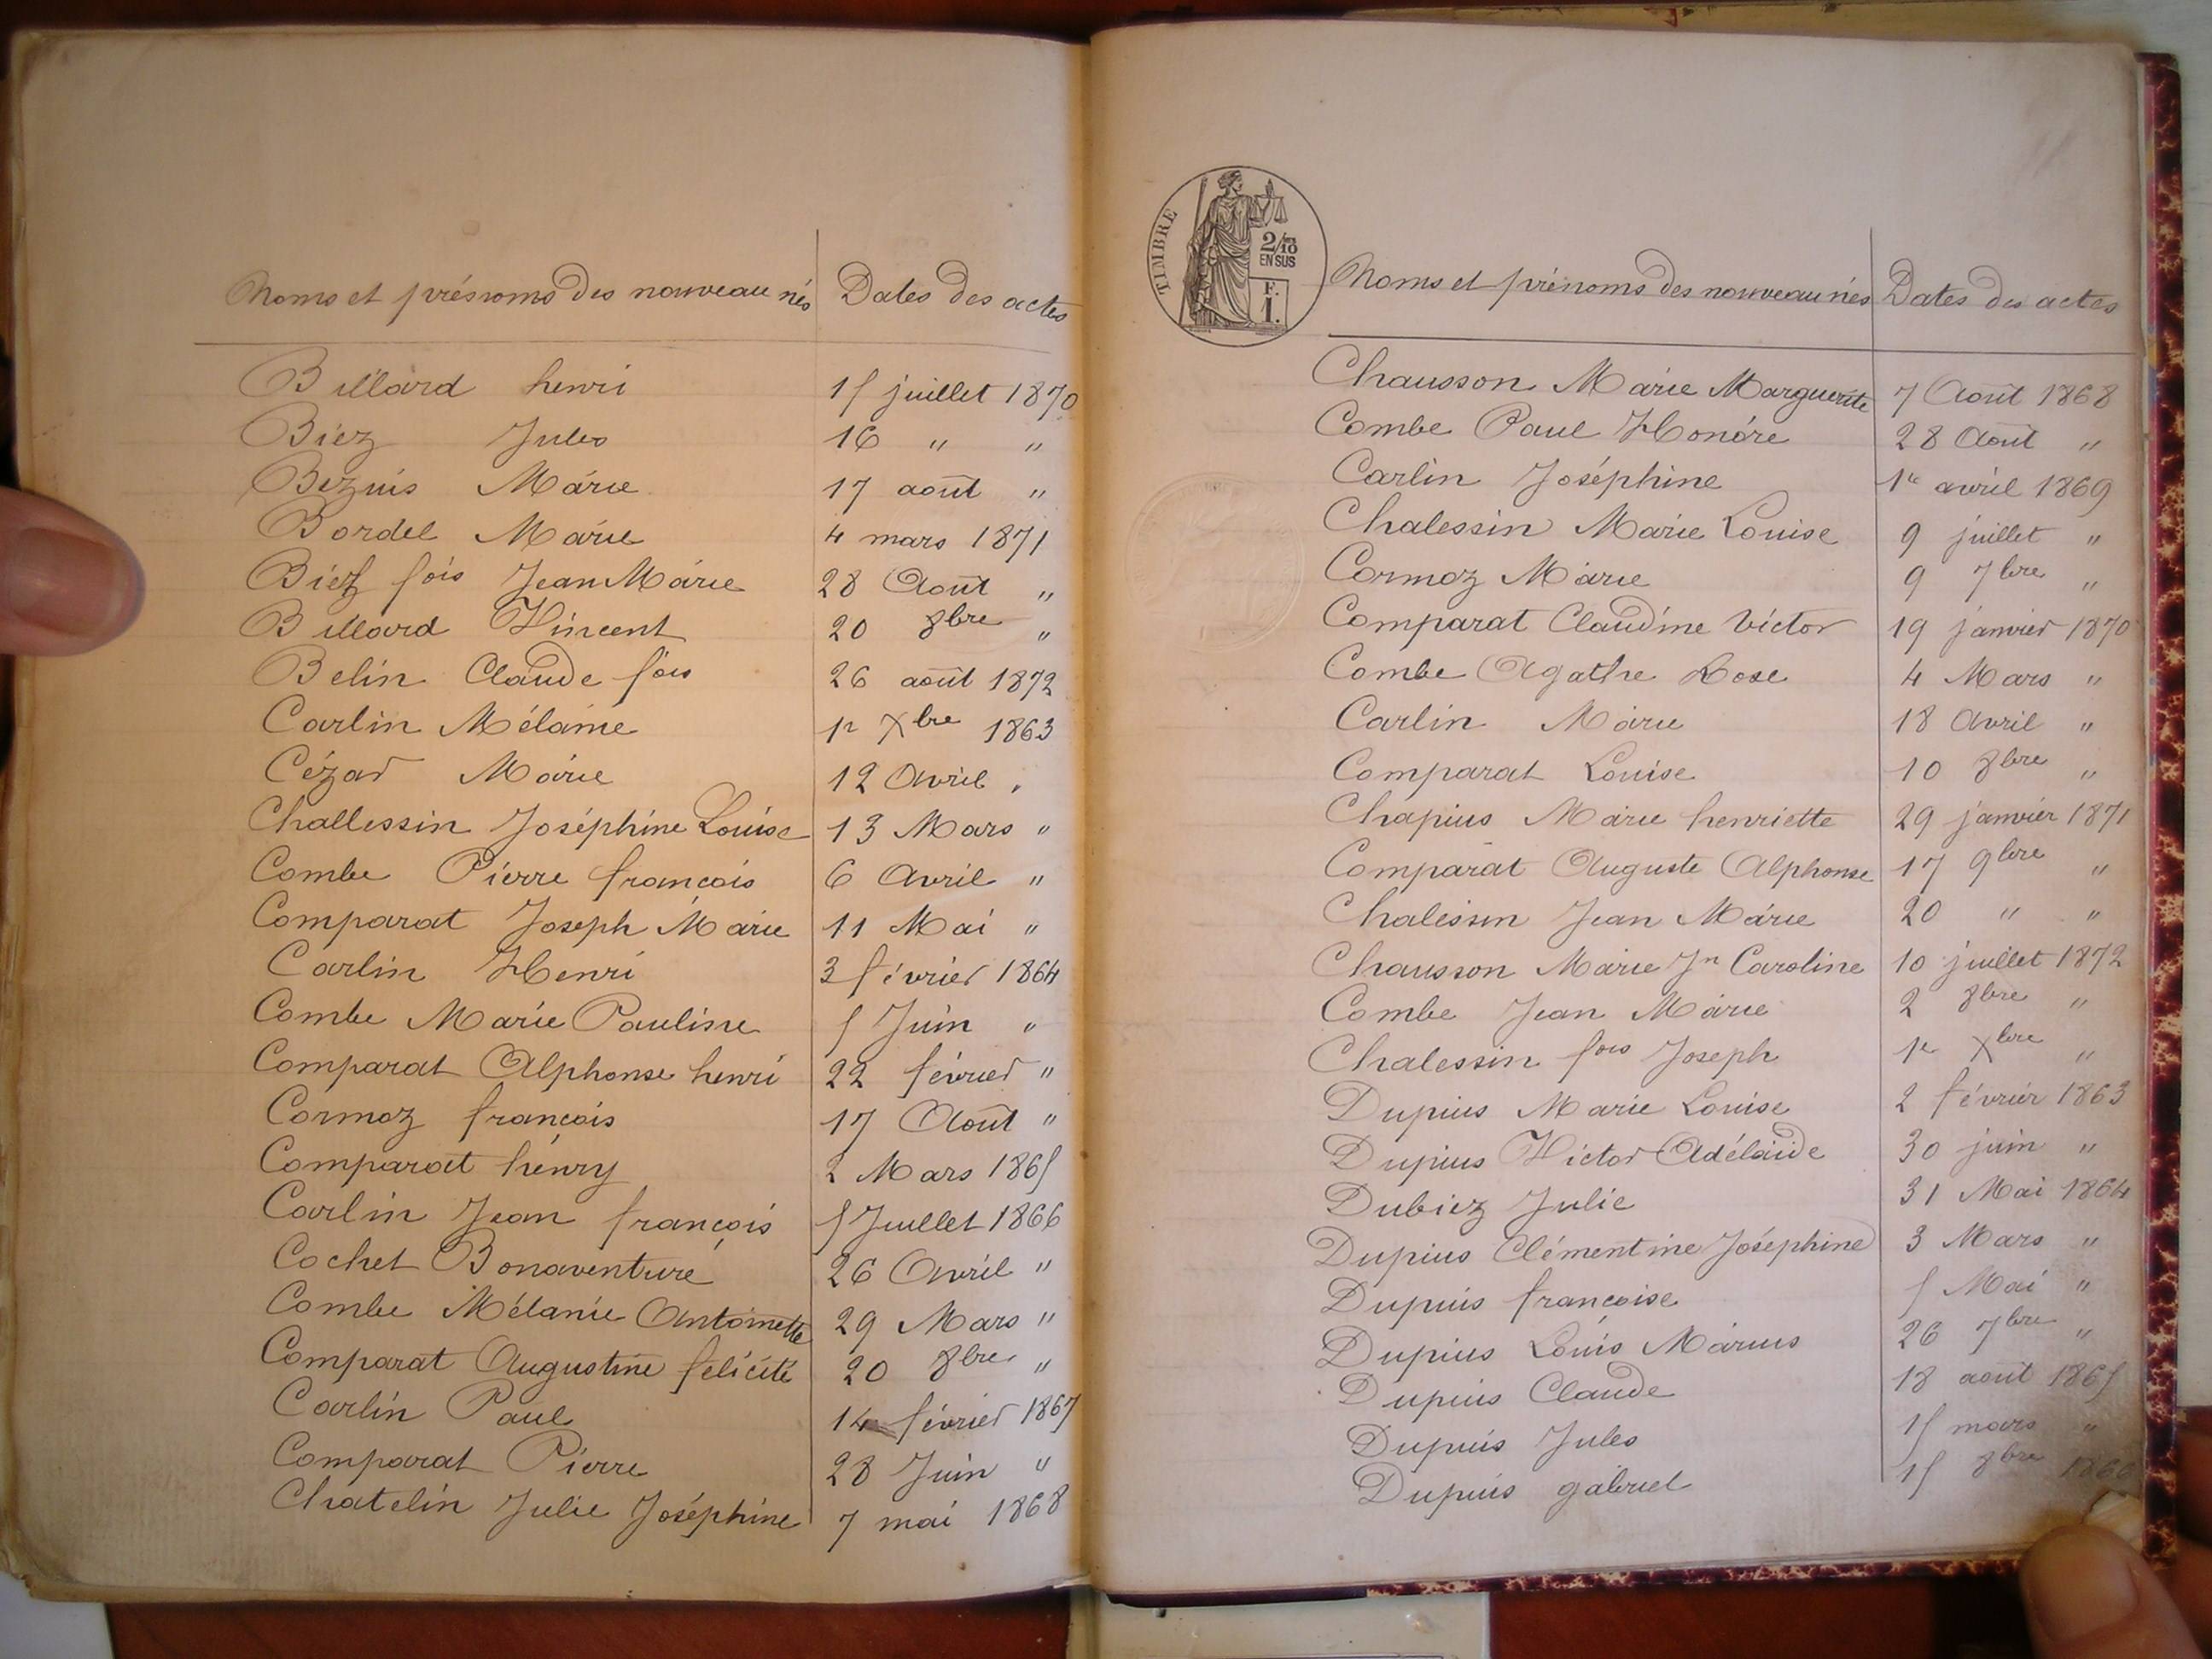 Noms et prénoms des nouveau nés Dates des actes
Billard henri 15 juillet 1870
Biez Jules 16 " "
Bezuis Marie 17 août "
Bordel Marie 4 mars 1871
Biez fois Jean Marie 28 Août "
Billard Vincent 20 8bre "
Belin Claude fois 26 août 1872
Carlin Mélanie 1r Xbre 1863
Cézar Marie 12 Avril "
Challessin Joséphine Louise 13 Mars "
Combe Pierre françois 6 Avril "
Comparat Joseph Marie 11 Mai "
Carlin Henri 3 février 1864
Combe Marie Pauline 5 Juin "
Comparat Alphonse henri 22 février "
Cormoz françois 17 Août "
Comparat hénry 2 Mars 1865
Carlin Jean françois 5 Juillet 1866
Cochet Bonaventure 26 Avril "
Combe Mélanie Antoinette 29 Mars "
Comparat Augustine félicité 20 8bre "
Carlin Paul 14 février 1867
Comparat Pierre 28 Juin "
Chatelin Julie Joséphine 7 mai 1868
TIMBRE
2/10
EN SUS
F.
1.
Noms et prénoms des nouveau nés Dates des actes
Chausson Marie Marguerite 7 Août 1868
Combe Paul Honóre 28 Août "
Carlin Joséphine 1er avril 1869
Chalessin Marie Louise 9 juillet "
Cormoz Marie 9 7bre "
Comparat Claudine Victor 19 janvier 1870
Combe Agathe Rose 4 Mars "
Carlin Marie 18 Avril "
Comparat Louise 10 8bre "
Chapius Marie henriette 29 janvier 1871
Comparat Auguste Alphonse 17 9bre "
Chalessin Jean Marie 20 " "
Chausson Marie Jn Caroline 10 juillet 1872
Combe Jean Marie 2 8bre "
Chalessin fois Joseph 1e Xbre "
Dupius Marie Louise 2 février 1863
Dupius Victor Adélaide 30 juin "
Dubiez Julie 31 Mai 1864
Dupius Clémentine Joséphine 3 Mars "
Dupuis françoise 5 Mai "
Dupius Louis Marius 26 7bre "
Dupius Claude 18 août 1865
Dupuis Jules 15 mars "
Dupuis gabriel 15 8bre 1866